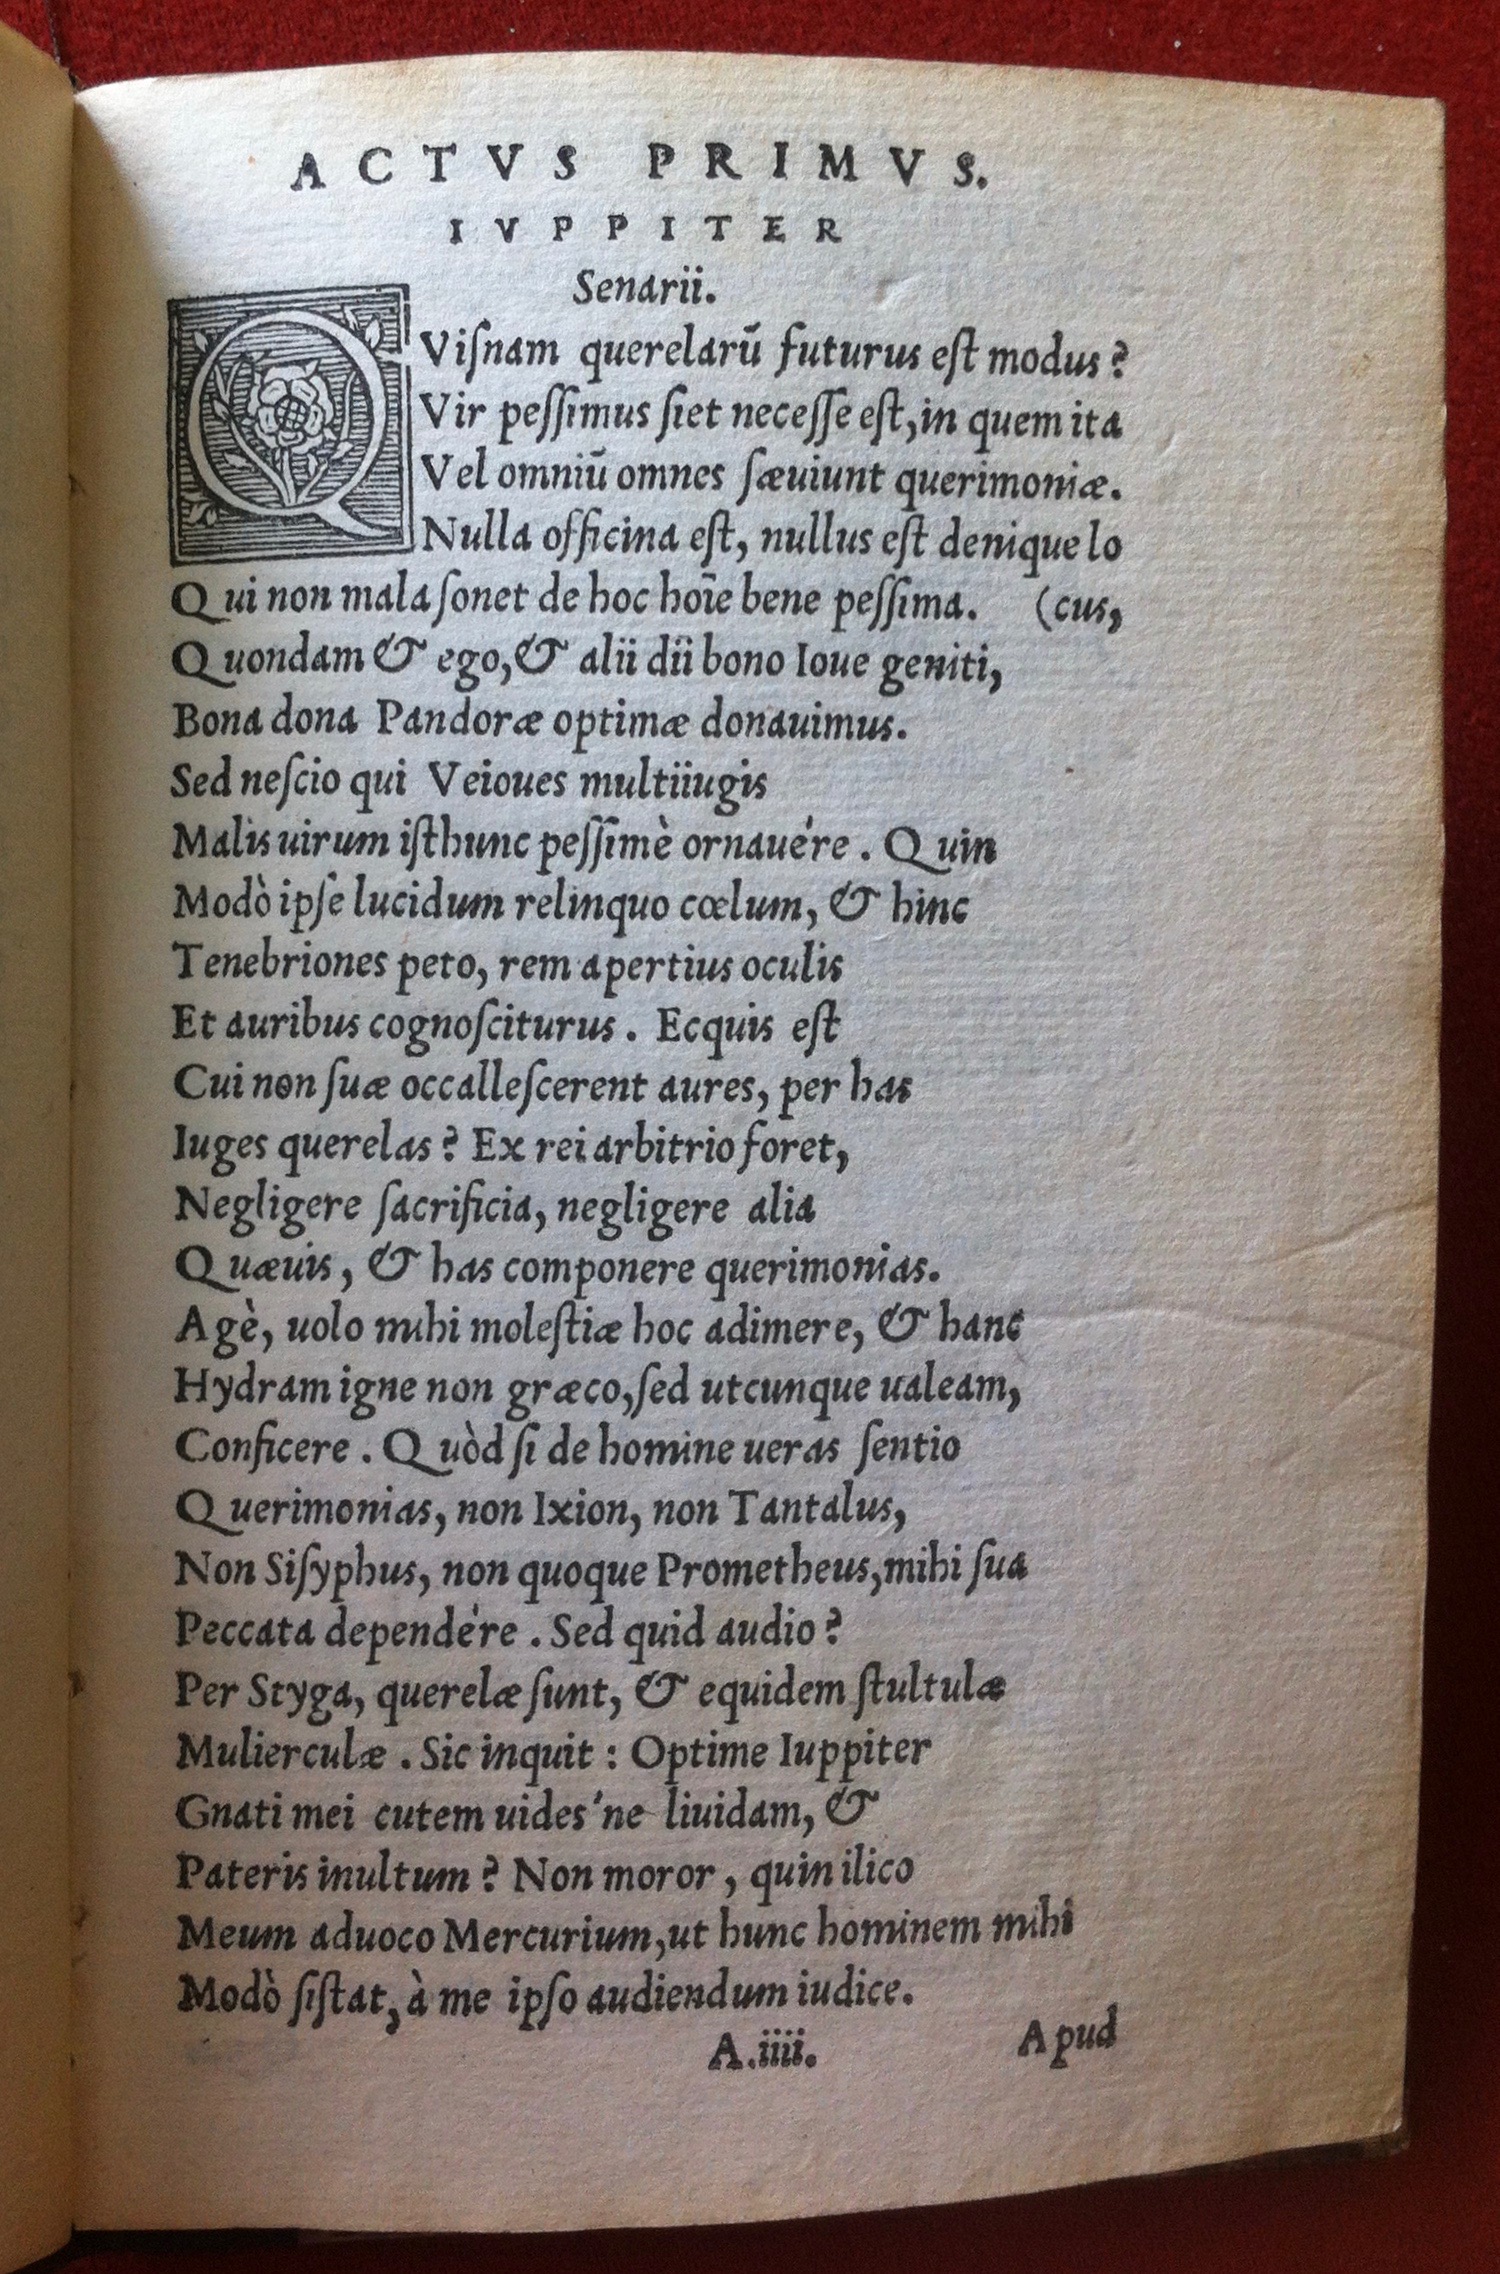 ACTVS PRIMVS.
IVPPITER
Senarii.
QViſnam querelarū futurus eſt modus?
Vir peſſimus ſiet neceſſe eſt, in quem ita
Vel omniū omnes ſæuiunt querimoniæ.
Nulla officina eſt, nullus eſt denique lo
Qui non mala ſonet de hoc hoīe bene peſſima. (cus,
Quondam & ego, & alii dii bono Ioue geniti,
Bona dona Pandoræ optimæ donauimus.
Sed neſcio qui Veioues multiiugis
Malis uirum iſthunc peſſimè ornauére. Quin
Modò ipſe lucidum relinquo cœlum, & hinc
Tenebriones peto, rem apertius oculis
Et auribus cognoſciturus. Ecquis eſt
Cui non ſuæ occalleſcerent aures, per has
Iuges querelas? Ex rei arbitrio foret,
Negligere ſacrificia, negligere alia
Quæuis, & has componere querimonias.
Agè, uolo mihi moleſtiæ hoc adimere, & hanc
Hydram igne non græco, ſed utcunque ualeam,
Conficere. Quòd ſi de homine ueras ſentio
Querimonias, non Ixion, non Tantalus,
Non Siſyphus, non quoque Prometheus, mihi ſua
Peccata dependére. Sed quid audio?
Per Styga, querelæ ſunt, & equidem ſtultulæ
Mulierculæ. Sic inquit: Optime Iuppiter
Gnati mei cutem uides'ne liuidam, &
Pateris inultum? Non moror, quin ilico
Meum aduoco Mercurium, ut hunc hominem mihi
Modò ſiſtat, à me ipſo audiendum iudice.
A.iiii. Apud